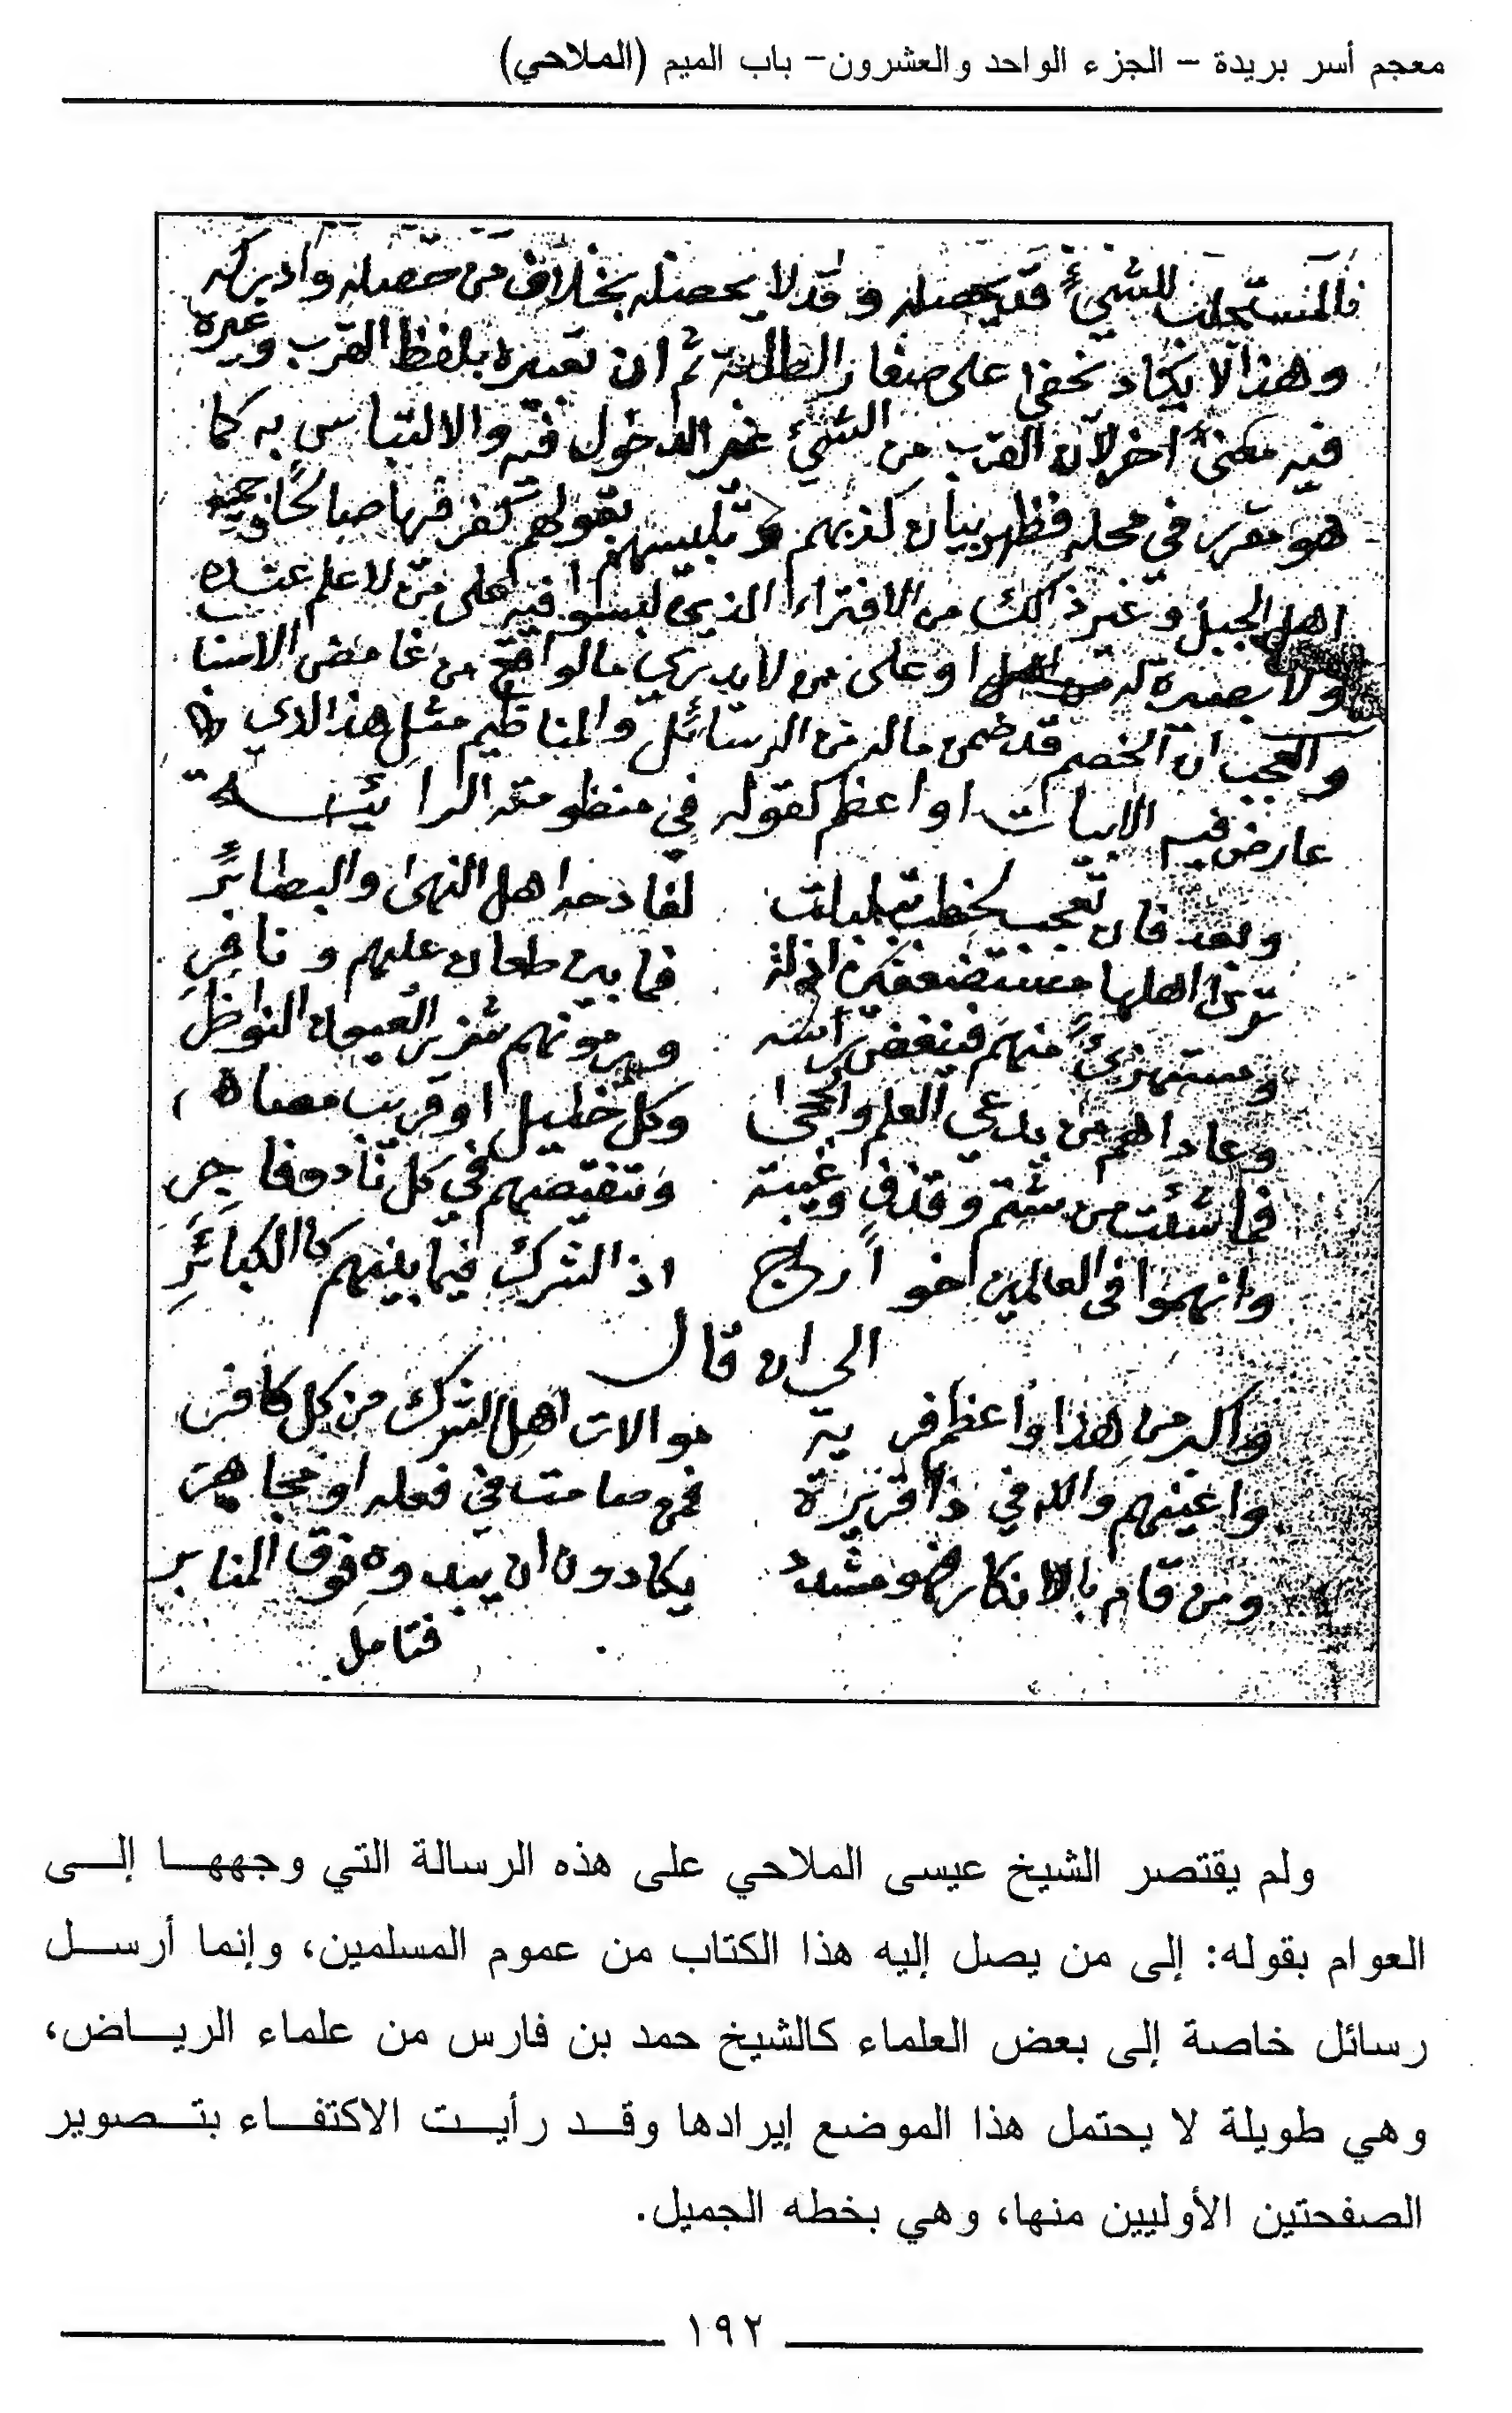 معجم أسر بريدة – الجزء الواحد والعشرون– باب الميم (الملاحي)
فالمستجلب للشيءِ قد يحصله وقد لا يحصله بخلاف من حصله وادركه
وهذا لا يكاد يخفى على صغار الطلبة ثم ان تعبيره بلفظ القرب وغيره
فيه معنىً اخر لان القرب من الشيءِ غير الدخول فيه والالتباس به كما
هو مقرر في محله فظهر بيان كذبهم وتلبيسهم بقولهم كفر فيها صالحًا وجميع
اهل الجبل وغير ذالك من الافتراء الذي لبسوا فيه على من لا علم عنده
ولا بصيرة له او على من لا يدري ما الواقع من غامض الاسنا
والعجب ان الخصم قد ضمن ماله من الرسائل والمناظيم مثل هذا الذي
عارض فيه الابيات او اعظم كقوله في منظومته الرائية
وبعد فان تعجب لخطب تبلبلت لفادحه اهل النهى والبصائر
ترى اهلها مستضعفين اذلة فما بين طعان عليهم ونافر
ومستهزئ منهم فينغض رأسه ويرمونهم شزر العيون النواظر
وعاداهم من يدعي العلم والحجى وكل خليل او قريب مصاهر
فما شئت من شتم وقذف وغيبة وتنقيصهم في كل ناد وفاجر
وانهموا في العالمين اخو اذ الشرك فيما بينهم كالكبائر
الى ان قال
واكبر من هذا واعظم فرية موالات اهل الشرك من كل كافر
واغبنهم والله في ذا فمن صامت في فعله او مجاهر
ومن قام بالانكار فهو مشدد يكادون ان يبدوه فوق المنابر
فتامل
ولم يقتصر الشيخ عيسى الملاحي على هذه الرسالة التي وجهها إلى
العوام بقوله: إلى من يصل إليه هذا الكتاب من عموم المسلمين، وإنما أرسل
رسائل خاصة إلى بعض العلماء كالشيخ حمد بن فارس من علماء الرياض،
وهي طويلة لا يحتمل هذا الموضع إيرادها وقد رأيت الاكتفاء بتصوير
الصفحتين الأوليين منها، وهي بخطه الجميل.
١٩٢